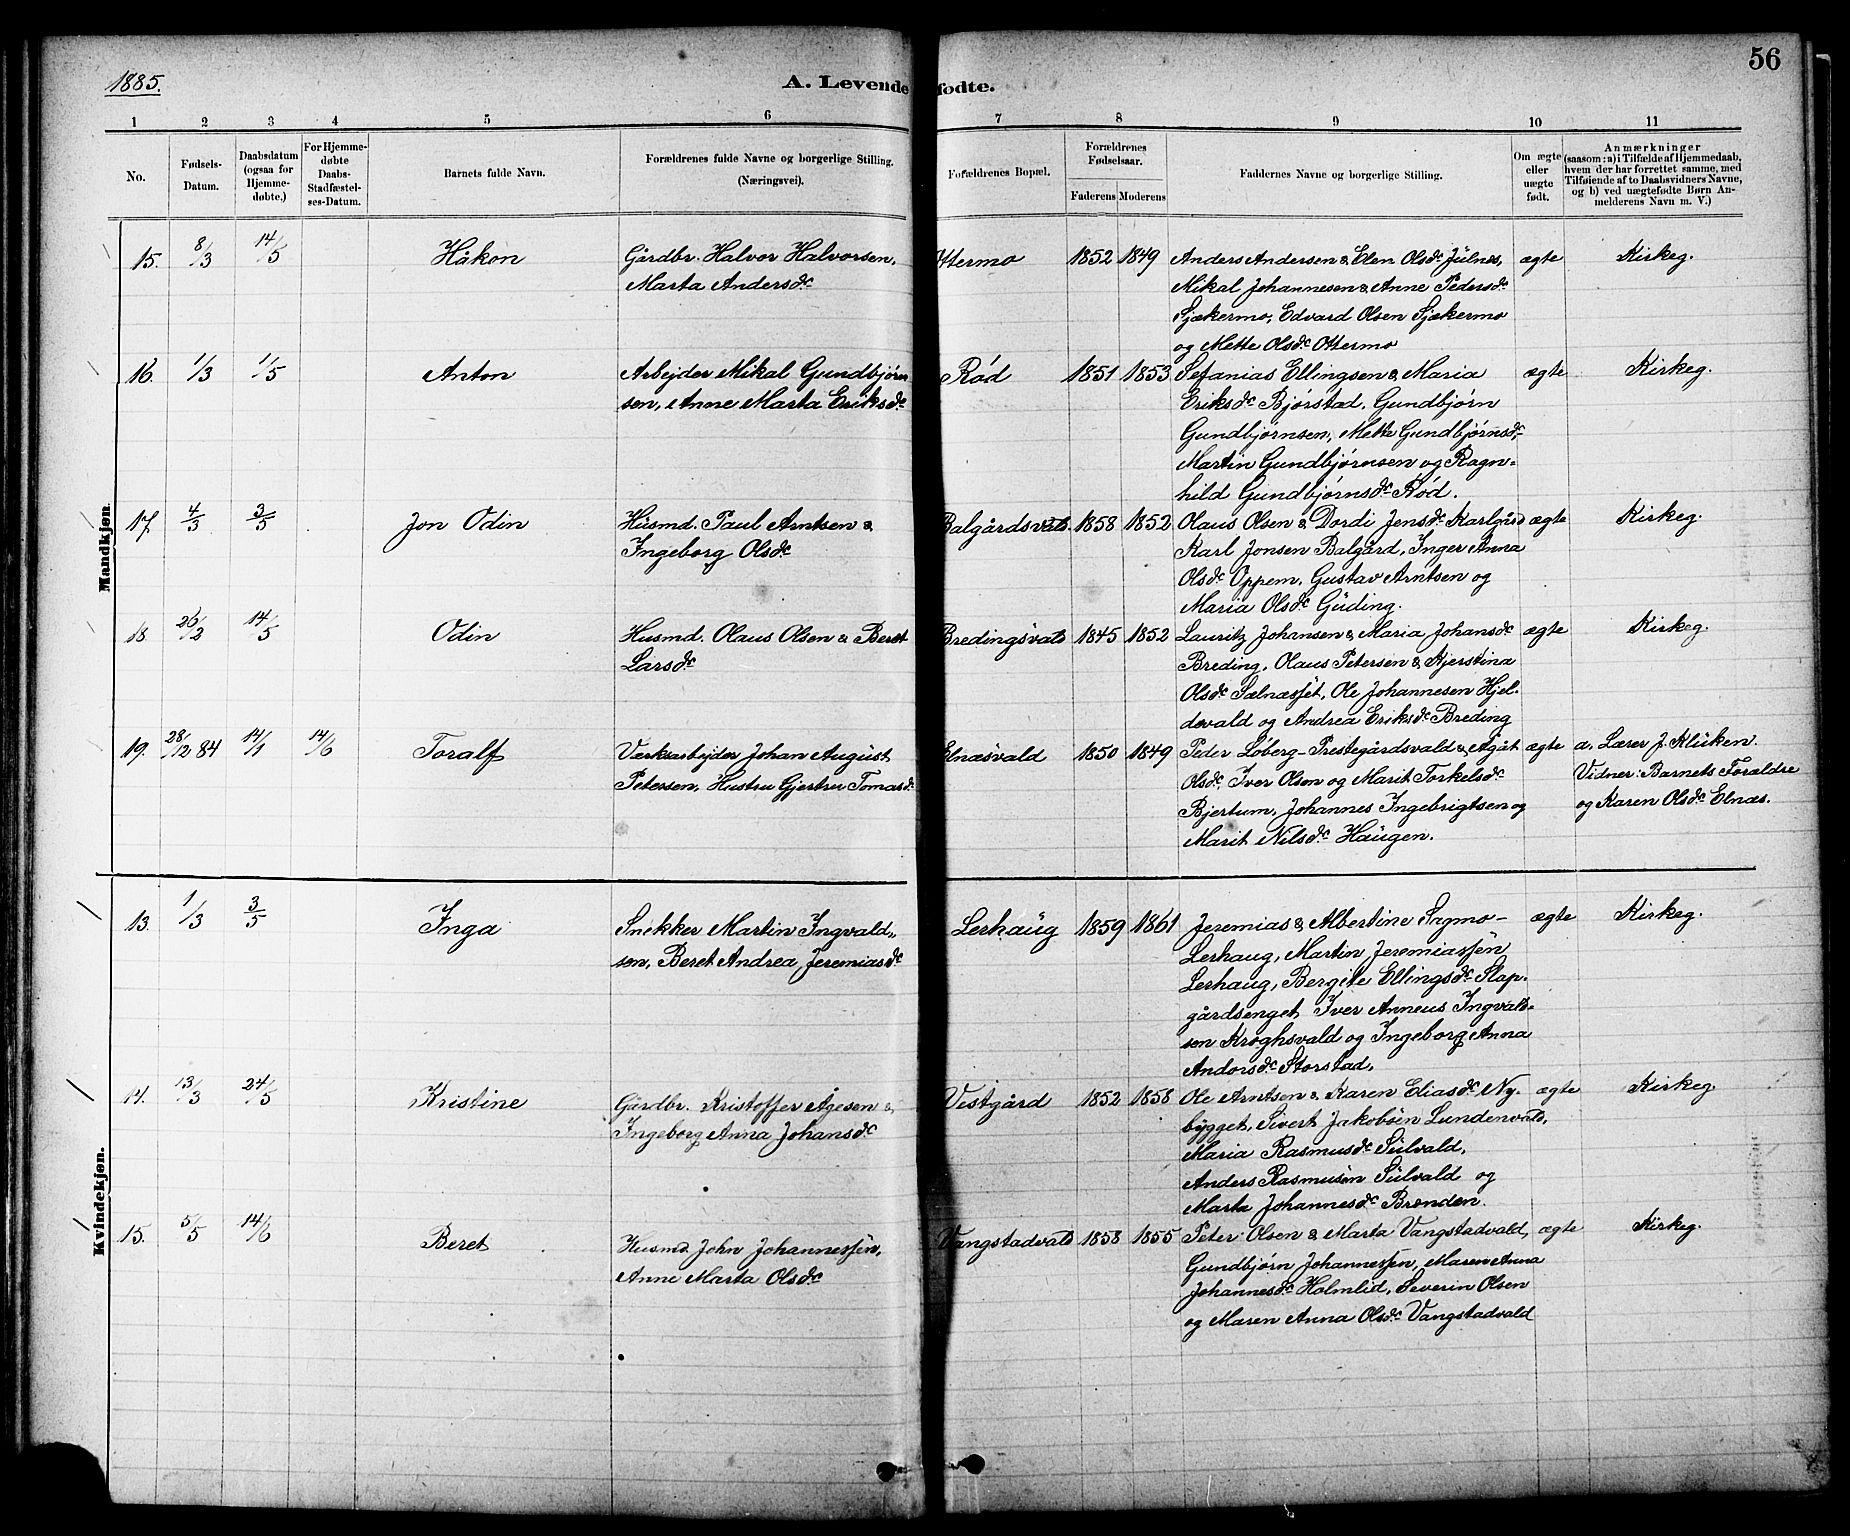 56
1885.
A. Levende fødte.
1 2 3 4 5 6 7 8 9 10 11
No.
Fødsels-
Datum.
Daabsdatum
(ogsaa for
Hjemme-
døbte.)
For Hjemme-
døbte
Daabs-
Stadfæstel-
ses-Datum.
Barnets fulde Navn.
Forældrenes fulde Navne og borgerlige Stilling.
(Næringsvei).
Forældrenes Bopæl.
Forældrenes
Fødselsaar.
Faderens Moderens
Faddernes Navne og borgerlige Stilling.
Om ægte
eller
uægte
født.
Anmærkninger
(saasom: a) i Tilfælde af Hjemmedaab,
hvem der har forrettet samme, med
Tilføiende af to Daabsvidners Navne,
og b) ved uægtefødte Børn An-
melderens Navn m. V.)
Mandkjøn.
15. 8/3 14/5 Håkon Gårdbr. Halvor Halvorsen, Ottermo 1852 1849 Anders Andersen & Elen Olsdr Julnes, ægte Kirkeg.
Marta Andersdr Mikal Johannesen & Anne Pedersdr
Sjækermo, Edvard Olsen Sjækermo
og Mette Olsdr Ottermo
16. 1/3 1/5 Anton Arbejder Mikal Gundbjørn Rød 1851 1853 Sefanias Ellingsen & Maria ægte Kirkeg.
sen, Anne Marta Eriksdr Eriksdr Bjørstad, Gundbjørn
Gundbjørnsen, Mette Gundbjørnsdr,
Martin Gundbjørnsen og Ragn-
hild Gundbjørnsdr Rød.
17. 4/3 3/5 Jon Odin Husmd. Paul Arntsen & Balgårdsvald. 1858 1852 Olaus Olsen & Dordi Jensdr Karlgård ægte Kirkeg.
Ingeborg Olsdr Karl Jonsen Balgård, Inger Anna
Olsdr Oppem, Gustav Arntsen og
Maria Olsdr Guding.
18. 26/2 14/5 Odin Husmd. Olaus Olsen & Beret Bredingsvald 1845 1852 Lauritz Johansen & Maria Johansdr ægte Kirkeg.
Larsdr Breding, Olaus Petersen & Kjerstina
Olsdr Sælnæsset, Ole Johannesen Hjel-
desvald og Andrea Eriksdr Breding
19. 28/12 84 14/1 14/6 Toralf Værksarbejder Johan August Elnæsvald 1850 1849 Peder Løberg-Prestegårdsvald & Agåt ægte a. Lærer J. Kluken.
Petersen, Hustru Gjertru Tomasdr Olsdr, Iver Olsen og Marit Torkelsdr Vidner: Barnets Foraldre
Bjertum, Johannes Ingebrigtsen og og Karen Olsdr Elnæs.
Marit Nilsdr Haugen.
Kvindekjøn.
13. 1/3 3/5 Inga Snekker Martin Ingvald- Lerhaug 1859 1861 Jeremias & Albertine Sagmo- ægte Kirkeg.
sen, Beret Andrea Jeremiasdr Lerhaug, Martin Jeremiassen
Lerhaug, Bergite Ellingsdr Slap-
gårdsenget, Iver Anneus Ingvald-
sen Kroghsvald og Ingeborg Anna
Andorsdr Storstad,
14. 13/3 24/5 Kristine Gårdbr. Kristoffer Ågesen & Vestgård 1852 1858 Ole Arntsen & Karen Eliasdr Ny- ægte Kirkeg.
Ingeborg Anna Johansdr bygget, Sivert Jakobsen Lundenvald,
Maria Rasmusdr Sulvald,
Anders Rasmusen Sulvald og
Marta Johannesdr Brenden.
15. 5/5 14/6 Beret Husmd John Johannessen, Vangstadvald 1858 1855 Peter Olsen & Marta Vangstadvald, ægte Kirkeg.
Anne Marta Olsdr Gundbjørn Johannessen, Maren Anna
Johannesdr Holmlid, Severin Olsen
og Maren Anna Olsdr Vangstadvald